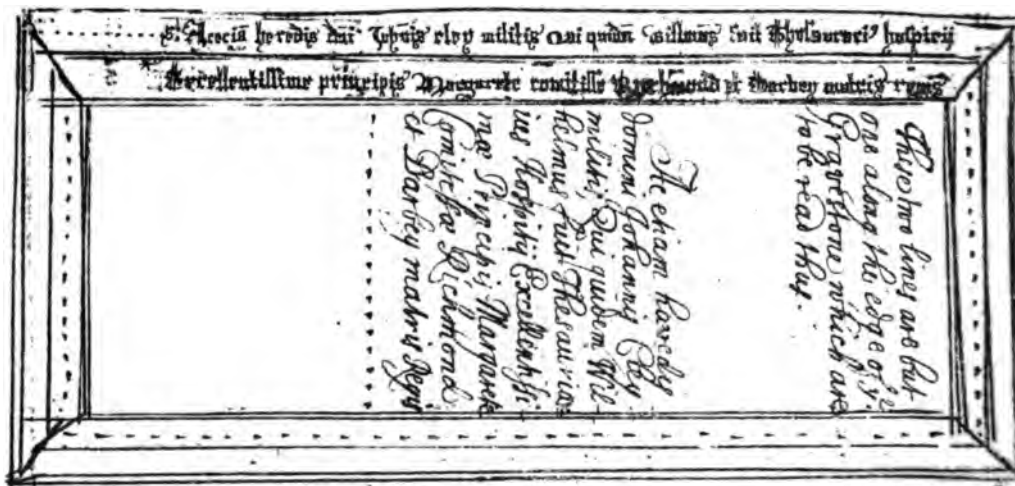 heredis dni Johnis cley militis Qui quidm Willmus fuit Thesaurari' hospicij
Excellentissime principis Margarete comitisse Rychmond et Darbey matris regis
These two lines are but
one along the edge of yᵉ
Gravestone which are
to be read thus.
Ac etiam hæredis
domini Johannis Cley
militis, Qui quidem Wil
helmus fuit Thesaurar
ius Hospitij Excellentissi
mæ Principis Margaretæ
Comitissæ Richmond
et Darbey matris Regis